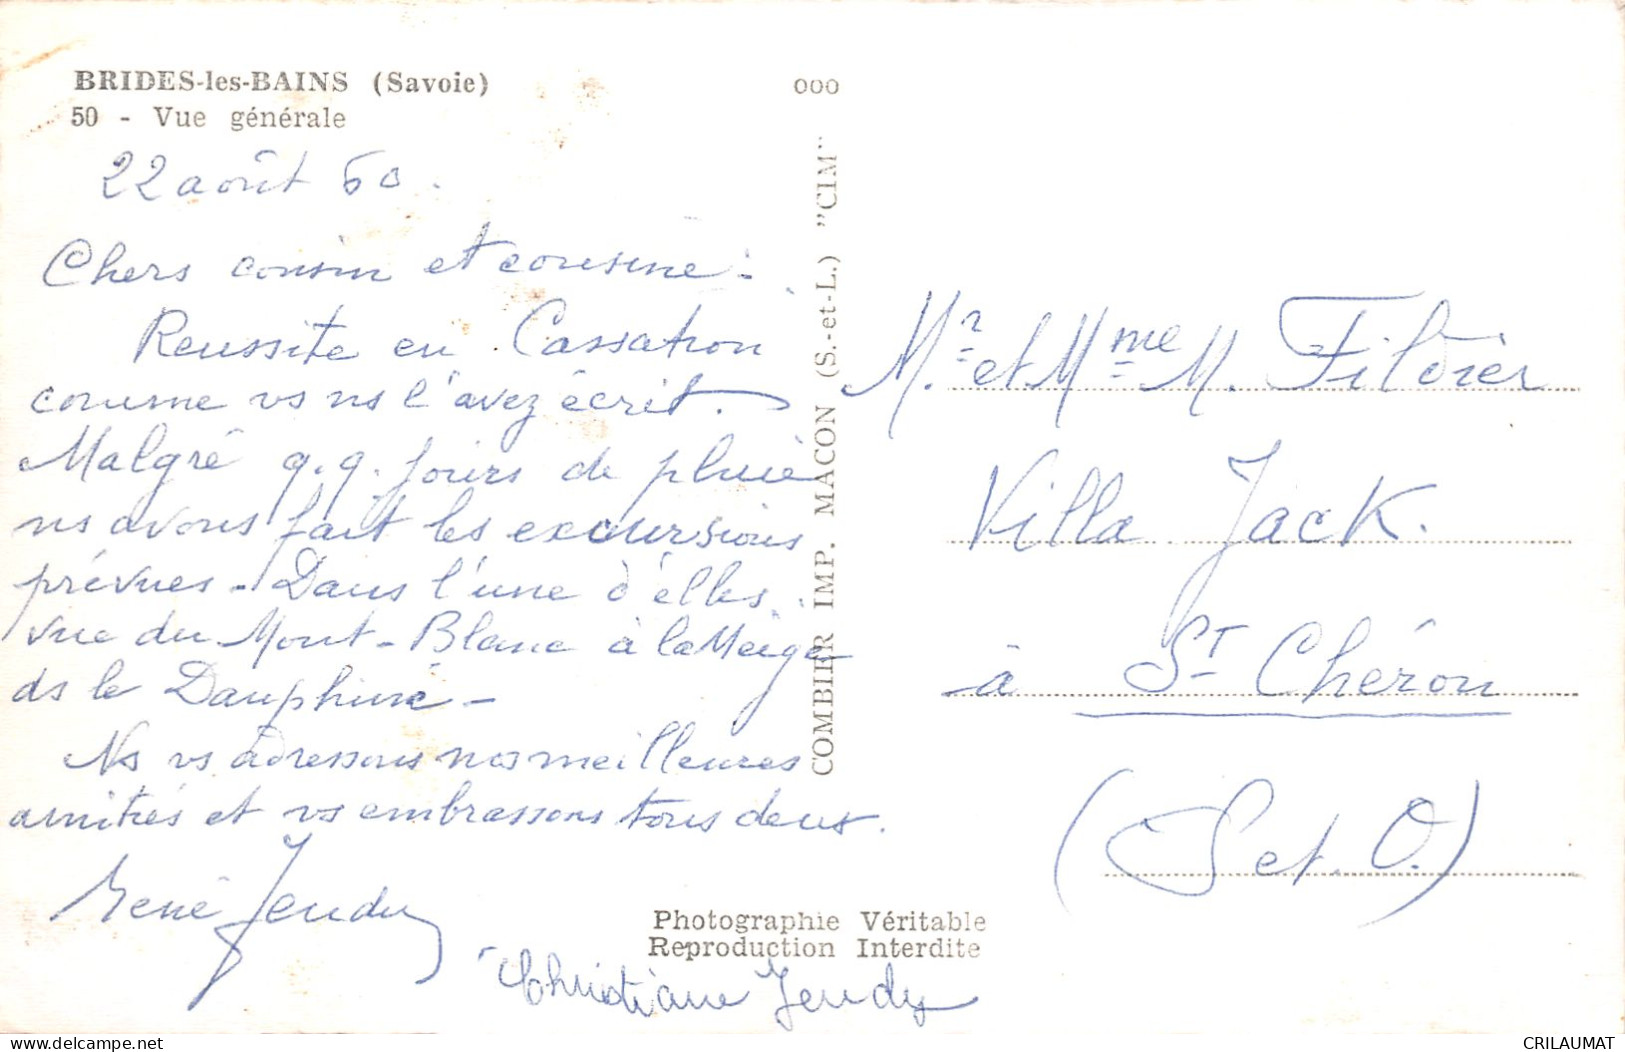 BRIDES-les-BAINS (Savoie)
50 - Vue générale
000
22 août 60.
Chers cousin et cousine :
Reussite en Cassation
comme vs ns l'avez écrit.
Malgré q.q. jours de pluie
ns avons fait les excursions
prévues - Dans l'une d'elles
vue du Mont-Blanc à la Meije
ds le Dauphiné -
Ns vs adressons nos meilleures
amitiés et vs embrassons tous deux.
René Jeudy
Christiane Jeudy
COMBIER IMP. MACON (S.-et-L.) "CIM"
Mr. et Mme M. Fildier
Villa Jack.
à St Chéron
(S et. O.)
Photographie Véritable
Reproduction Interdite
www.delcampe.net
CRILAUMAT